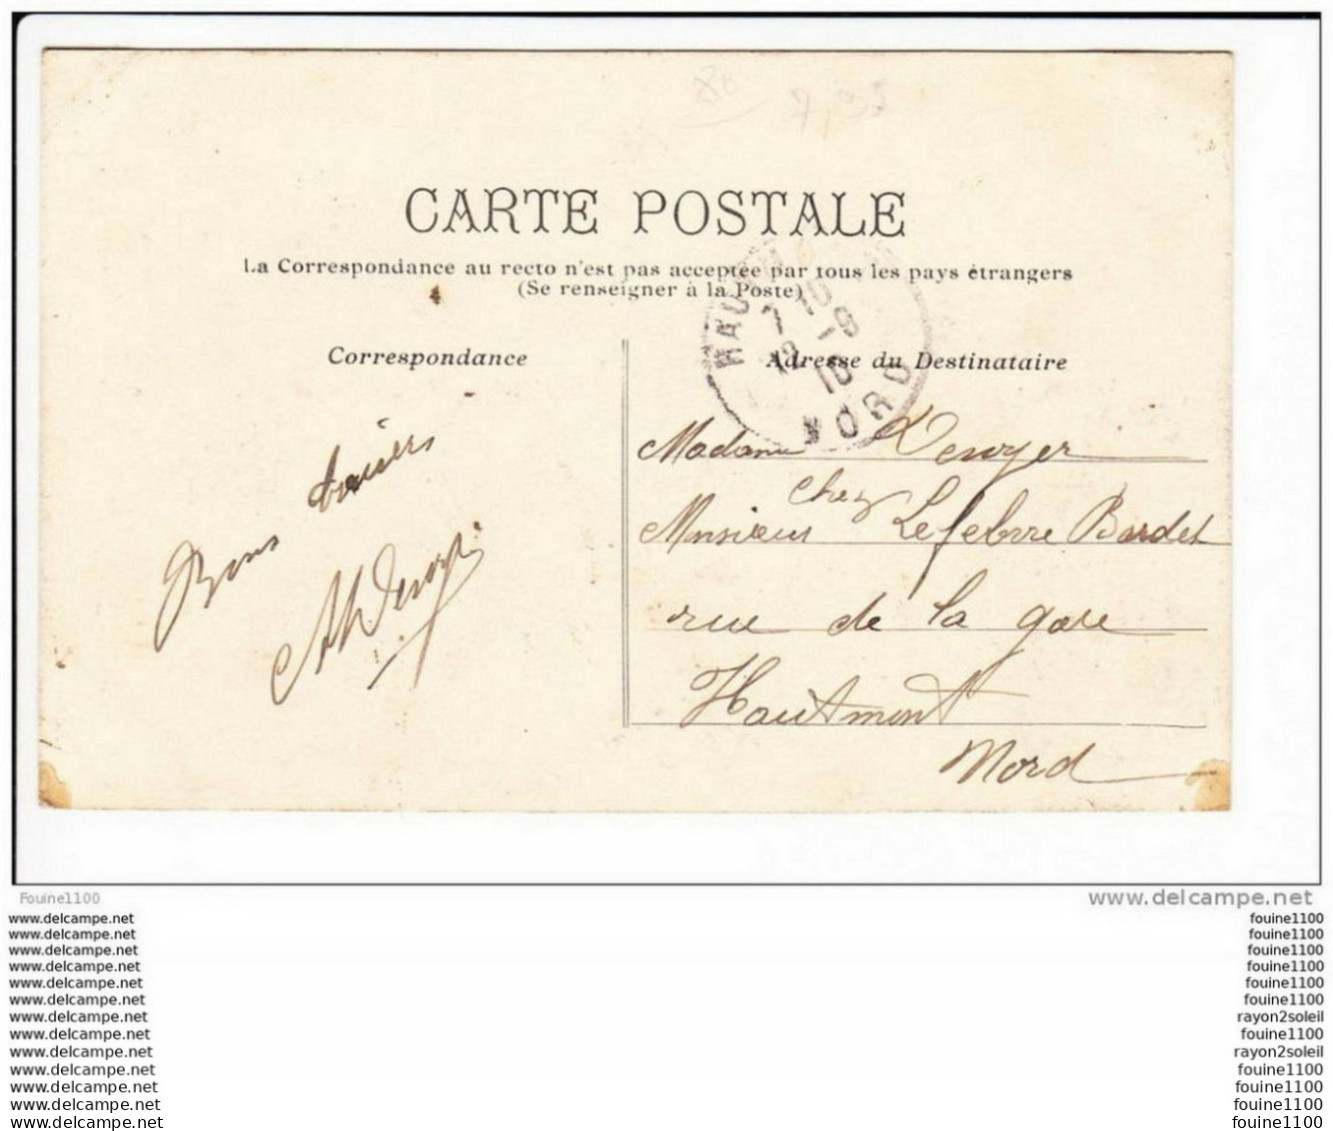 80 7,95
CARTE POSTALE
La Correspondance au recto n'est pas acceptée par tous les pays étrangers
(Se renseigner à la Poste)
Correspondance
Adresse du Destinataire
NORD
Bons baisers
Madame
chez
Monsieur Lefebvre Bardet
rue de la gare
Hautmont
Nord
Fouine1100
www.delcampe.net
www.delcampe.net fouine1100
www.delcampe.net fouine1100
www.delcampe.net fouine1100
www.delcampe.net fouine1100
www.delcampe.net fouine1100
www.delcampe.net fouine1100
www.delcampe.net rayon2soleil
www.delcampe.net fouine1100
www.delcampe.net rayon2soleil
www.delcampe.net fouine1100
www.delcampe.net fouine1100
www.delcampe.net fouine1100
www.delcampe.net fouine1100